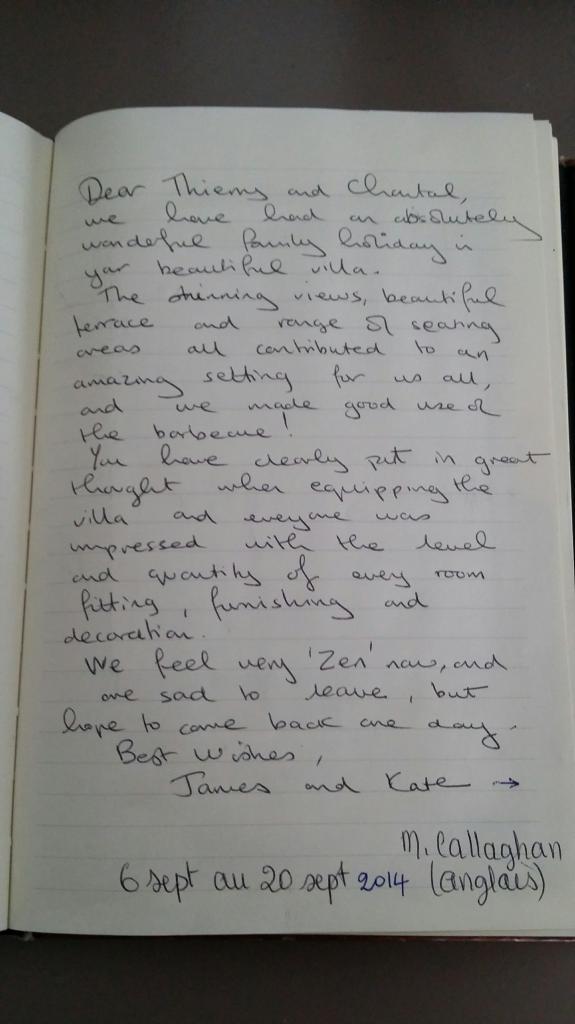 Dear Thierry and Chantal,
we have had an absolutely
wonderful family holiday in
your beautiful villa.
The stunning views, beautiful
terrace and range of seating
areas all contributed to an
amazing setting for us all,
and we made good use of
the barbecue!
You have clearly put in great
thought when equipping the
villa and everyone was
impressed with the level
and quantity of every room
fitting, furnishing and
decoration.
We feel very 'Zen' now, and
are sad to leave, but
hope to come back one day.
Best Wishes,
James and Kate →
M. Callaghan
6 sept au 20 sept 2014 (anglais)